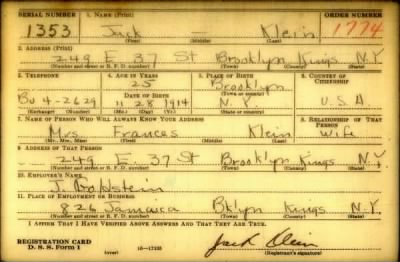 SERIAL NUMBER 1. NAME (Print) ORDER NUMBER
1353 Jack — Klein 1774
(First) (Middle) (Last)
2. ADDRESS (Print)
249 E. 37 St Brooklyn Kings N.Y.
(Number and street or R. F. D. number) (Town) (County) (State)
3. TELEPHONE 4. AGE IN YEARS 5. PLACE OF BIRTH 6. COUNTRY OF CITIZENSHIP
25 Brooklyn
DATE OF BIRTH (Town or county)
BU 4-2629 11 28 1914 N.Y. U.S.A
(Exchange) (Number) (Mo.) (Day) (Yr.) (State or country)
7. NAME OF PERSON WHO WILL ALWAYS KNOW YOUR ADDRESS 8. RELATIONSHIP OF THAT PERSON
Mrs Frances Klein Wife
(Mr., Mrs., Miss) (First) (Middle) (Last)
9. ADDRESS OF THAT PERSON
249 E. 37 St Brooklyn Kings N.Y.
(Number and street or R. F. D. number) (Town) (County) (State)
10. EMPLOYER'S NAME
J.
11. PLACE OF EMPLOYMENT OR BUSINESS
826 Jamaica Bklyn Kings N.Y.
(Number and street or R. F. D. number) (Town) (County) (State)
I AFFIRM THAT I HAVE VERIFIED ABOVE ANSWERS AND THAT THEY ARE TRUE.
REGISTRATION CARD
D. S. S. Form 1 (over) 16—17105 Jack Klein
(Registrant's signature)